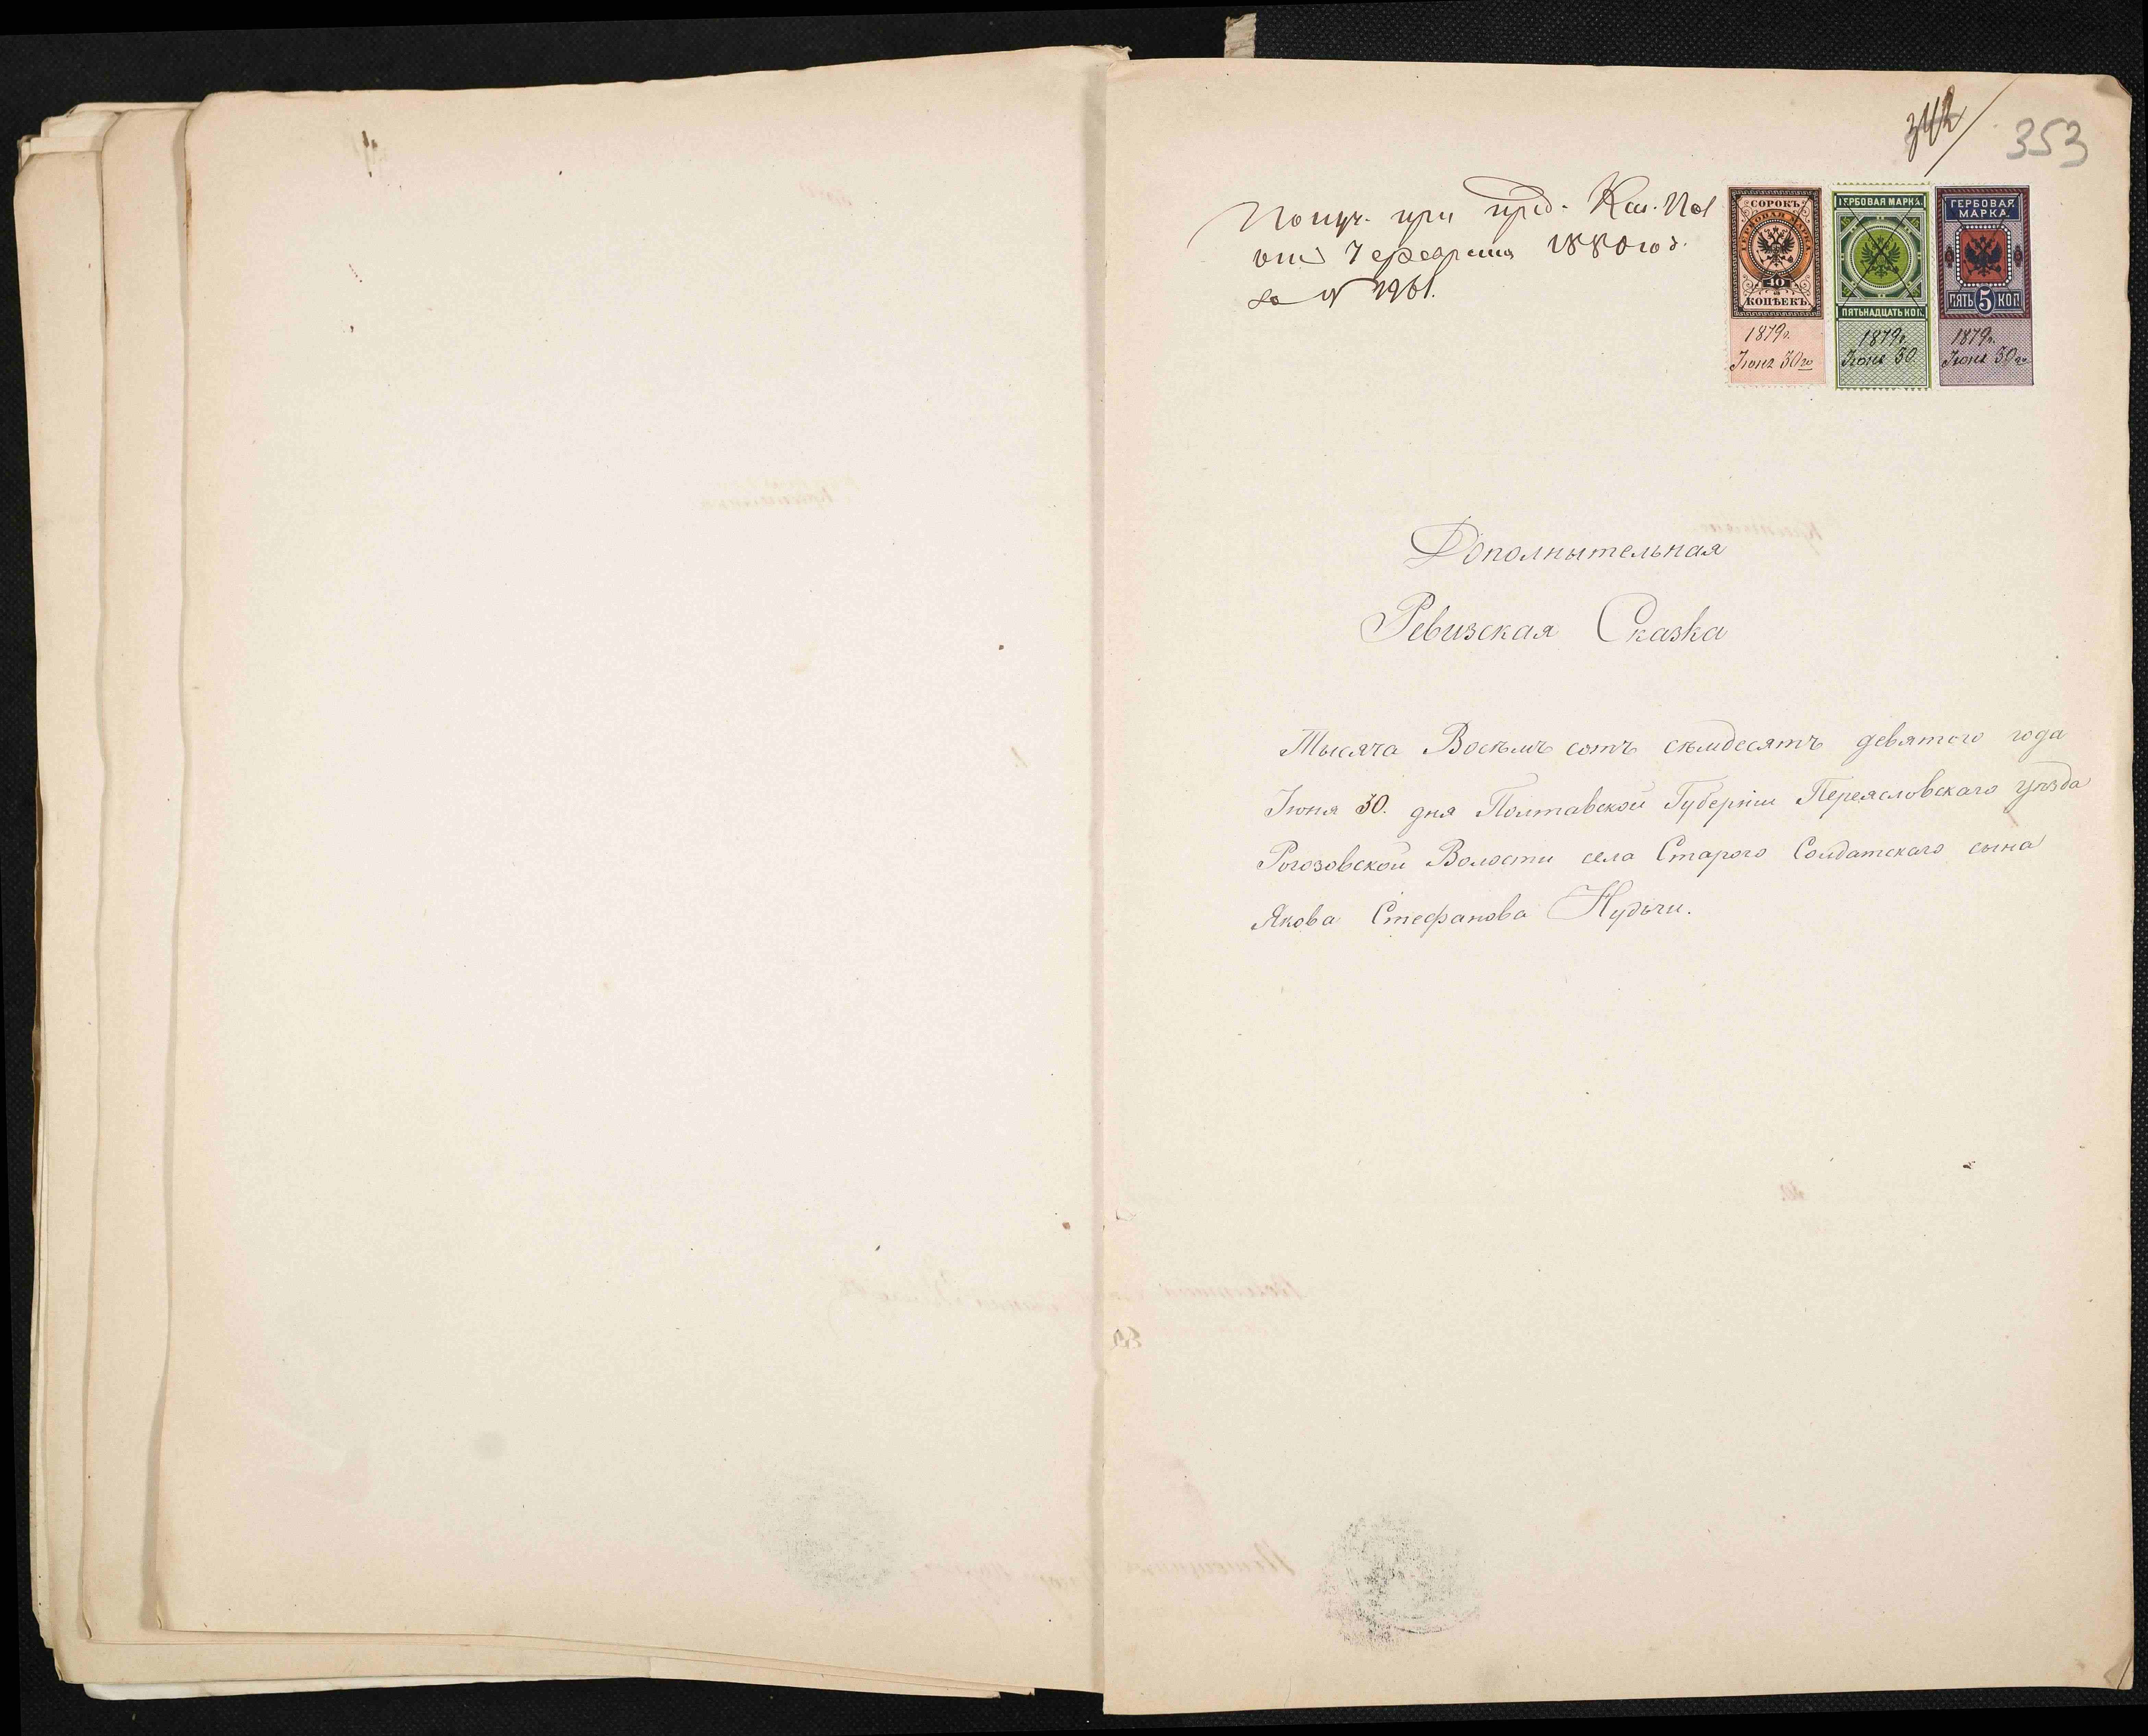 342
353
Получ. при пред. Каз. Пал
от 7 февраля 1880 год.
за № 1961.
СОРОКЪ
ГЕРБОВАЯ МАРКА
40
КОПѢЕКЪ
1879г.
Іюня 30го
ГЕРБОВАЯ МАРКА.
ПЯТЬНАДЦАТЬ КОП.
1879г.
Іюня 30
ГЕРБОВАЯ
МАРКА.
ПЯТЬ 5 КОП
1879г.
Іюня 30го
Дополнытельная
Ревизская Сказка
Тысяча Восѣмъ сотъ сѣмдесятъ девятого года
Іюня 30. дня Полтавской Губерніи Переясловскаго уѣзда
Рогозовской Волости села Старого Солдатскаго сына
Якова Стефанова Нудьги.